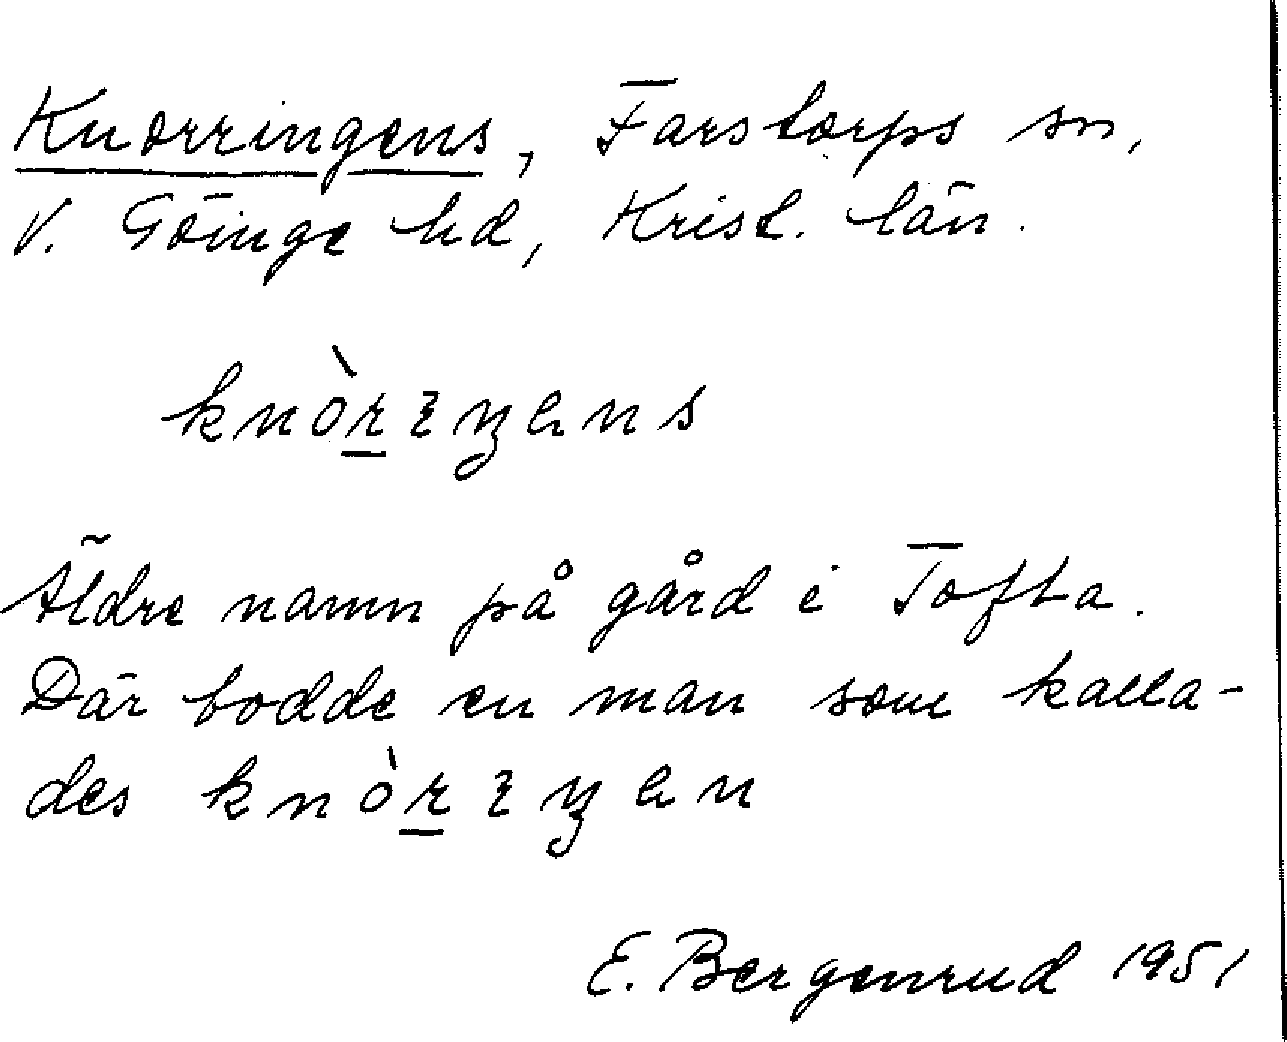 Knorringens, Farstorps sn,
V. Göinge hd, Krist. län.
knòrɿŋans
Äldre namn på gård i Tofta.
Där bodde en man som kalla-
des knòrɿŋan
E. Bergenrud 1951